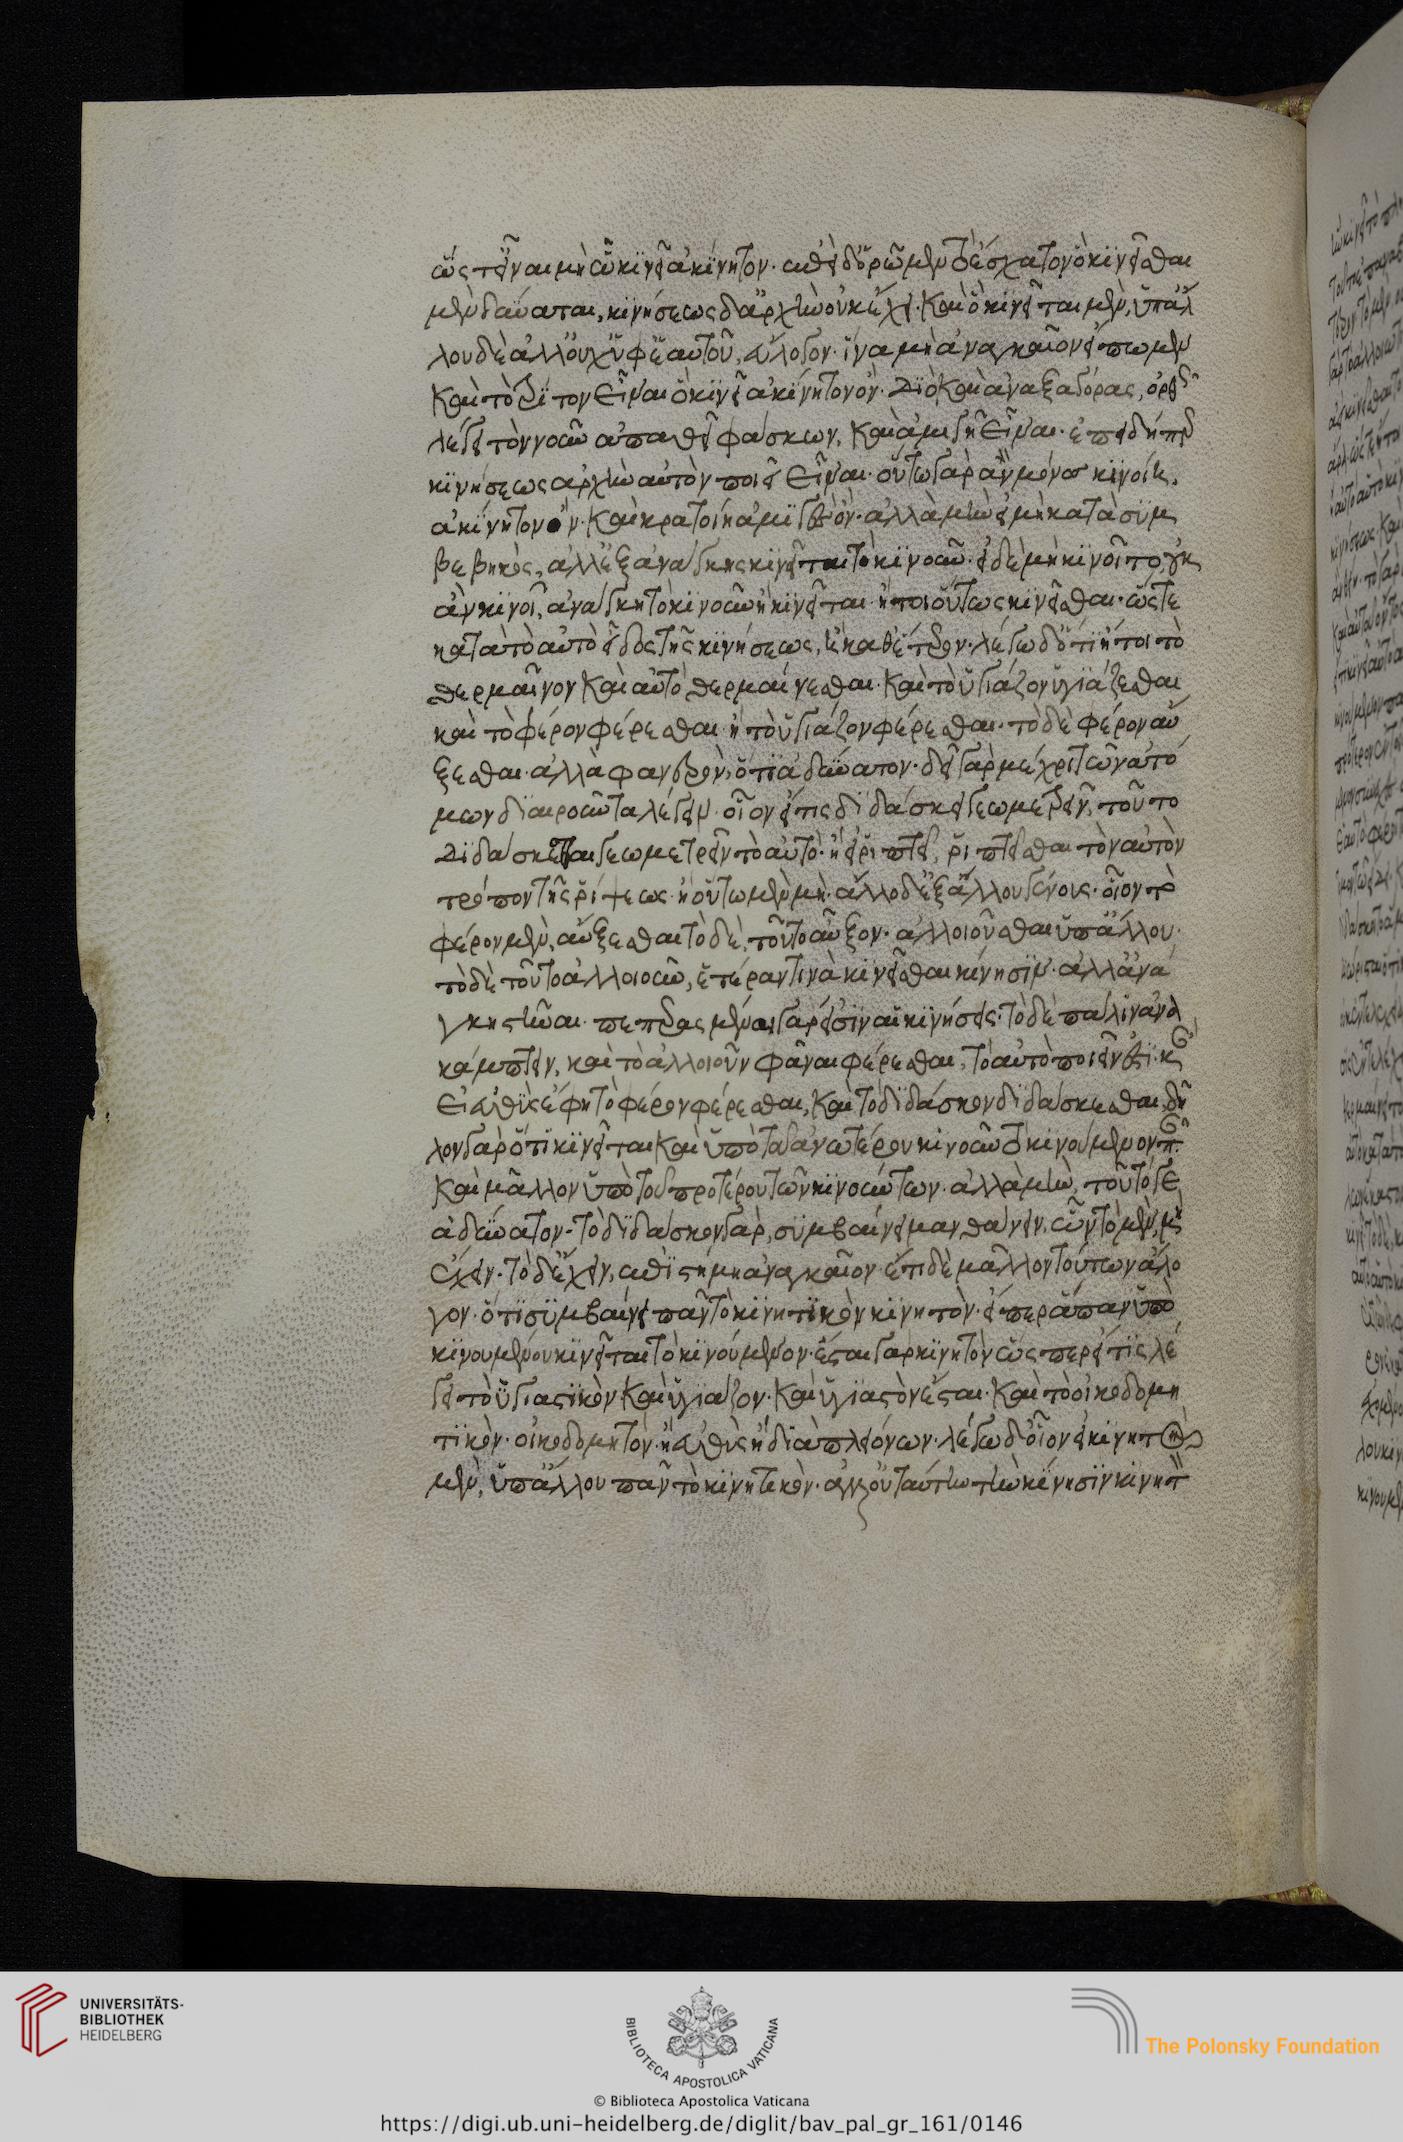 ὥστ' εἶναι μὴ ὃ κινεῖ ἀκίνητον. ἐπεὶ δ' ὁρῶμεν τὸ ἔσχατον ὃ κινεῖσθαι
μὲν δύναται, κινήσεως δ' ἀρχὴν οὐκ ἔχει· καὶ ὃ κινεῖται μὲν, ὑπ' ἄλ
λου δὲ ἀλλ' οὐχ ὑφ' ἑαυτοῦ, εὔλογον· ἵνα μὴ ἀναγκαῖον εἴπωμεν
καὶ τὸ τρίτον εἶναι ὃ κινεῖ ἀκίνητον ὄν. διὸ καὶ ἀναξαγόρας, ὀρθῶς
λέγει τὸν νοῦν ἀπαθῆ φάσκων, καὶ ἀμιγῆ εἶναι· ἐπειδήπερ
κινήσεως ἀρχὴν αὐτὸν ποιεῖ εἶναι· οὕτω γὰρ ἂν μόνως κινοίη,
ἀκίνητον ὄν· καὶ κρατοίη ἀμιγὲς ὄν· ἀλλὰ μὴν εἰ μὴ κατὰ συμ
βεβηκὸς, ἀλλ' ἐξ ἀνάγκης κινεῖται τὸ κινοῦν· εἰ δὲ μὴ κινοῖτο, οὐκ
ἂν κινοῖ, ἀνάγκη τὸ κινοῦν ᾗ κινεῖται· ἤτοι οὕτως κινεῖσθαι· ὥστε
κατὰ τὸ αὐτὸ εἶδος τῆς κινήσεως, ἢ καθ' ἕτερον· λέγω δ' ὅτι ἤτοι τὸ
θερμαῖνον καὶ αὐτὸ θερμαίνεσθαι· καὶ τὸ ὑγιάζον ὑγιάζεσθαι
καὶ τὸ φέρον φέρεσθαι· ἢ τὸ ὑγιάζον φέρεσθαι· τὸ δὲ φέρον αὔ
ξεσθαι· ἀλλὰ φανερὸν, ὅτι ἀδύνατον· δεῖ γὰρ μέχρι τῶν ἀτό
μων διαιροῦντα λέγειν· οἷον εἴ τις διδάσκει γεωμετρεῖν, τοῦτο
διδάσκεται γεωμετρεῖν τὸ αὐτό· ἢ εἰ ῥιπτεῖ, ῥιπτεῖσθαι τὸν αὐτὸν
τρόπον τῆς ῥίψεως· ἢ οὕτω μὲν μὴ· ἄλλο δ' ἐξ ἄλλου γένους· οἷον τὸ
φέρον μὲν, αὔξεσθαι τὸ δὲ, τοῦτο αὖξον· ἀλλοιοῦσθαι ὑπ' ἄλλου·
τὸ δὲ τοῦτο ἀλλοιοῦν, ἑτέραν τινὰ κινεῖσθαι κίνησιν· ἀλλ' ἀνά
γκη στῆναι· πεπερασμέναι γάρ εἰσιν αἱ κινήσεις· τὸ δὲ πάλιν ἀνα
κάμπτειν, καὶ τὸ ἀλλοιοῦν φᾶναι φέρεσθαι, τὸ αὐτὸ ποιεῖν ἐστὶ· κἂν
εἰ εὐθὺς ἔφη τὸ φέρον φέρεσθαι, καὶ τὸ διδάσκον διδάσκεσθαι, δῆ
λον γὰρ ὅτι κινεῖται καὶ ὑπὸ τοῦ ἀνωτέρου κινοῦντος κινούμενον πᾶν
καὶ μᾶλλον ὑπὸ τοῦ προτέρου τῶν κινούντων· ἀλλὰ μὴν, τοῦτό γε
ἀδύνατον· τὸ διδάσκον γὰρ, συμβαίνει μανθάνειν, ὧν τὸ μὲν, μὴ
ἔχειν· τὸ δ' ἔχειν, ἐπιστήμην ἀναγκαῖον· ἔτι δὲ μᾶλλον τούτων ἄλο
γον· ὅτι συμβαίνει πᾶν τὸ κινητικὸν κινητὸν· εἴπερ ἅπαν ὑπὸ
κινουμένου κινεῖται τὸ κινούμενον· ἔσται γὰρ κινητὸν ὥσπερ εἴ τις λέ
γει τὸ ὑγιαστικὸν καὶ ὑγιάζον· καὶ ὑγιαστὸν ἔσται· καὶ τὸ οἰκοδομη
τικὸν· οἰκοδομητὸν· ἢ εὐθὺς ἢ διὰ πλειόνων· λέγω δ' οἷον εἰ κινητὸν
μὲν, ὑπ' ἄλλου πᾶν τὸ κινητικὸν· ἀλλ' οὐ ταύτην τὴν κίνησιν κινητὸν
UNIVERSITÄTS-
BIBLIOTHEK
HEIDELBERG
BIBLIOTECA APOSTOLICA VATICANA
The Polonsky Foundation
© Biblioteca Apostolica Vaticana
https://digi.ub.uni-heidelberg.de/diglit/bav_pal_gr_161/0146